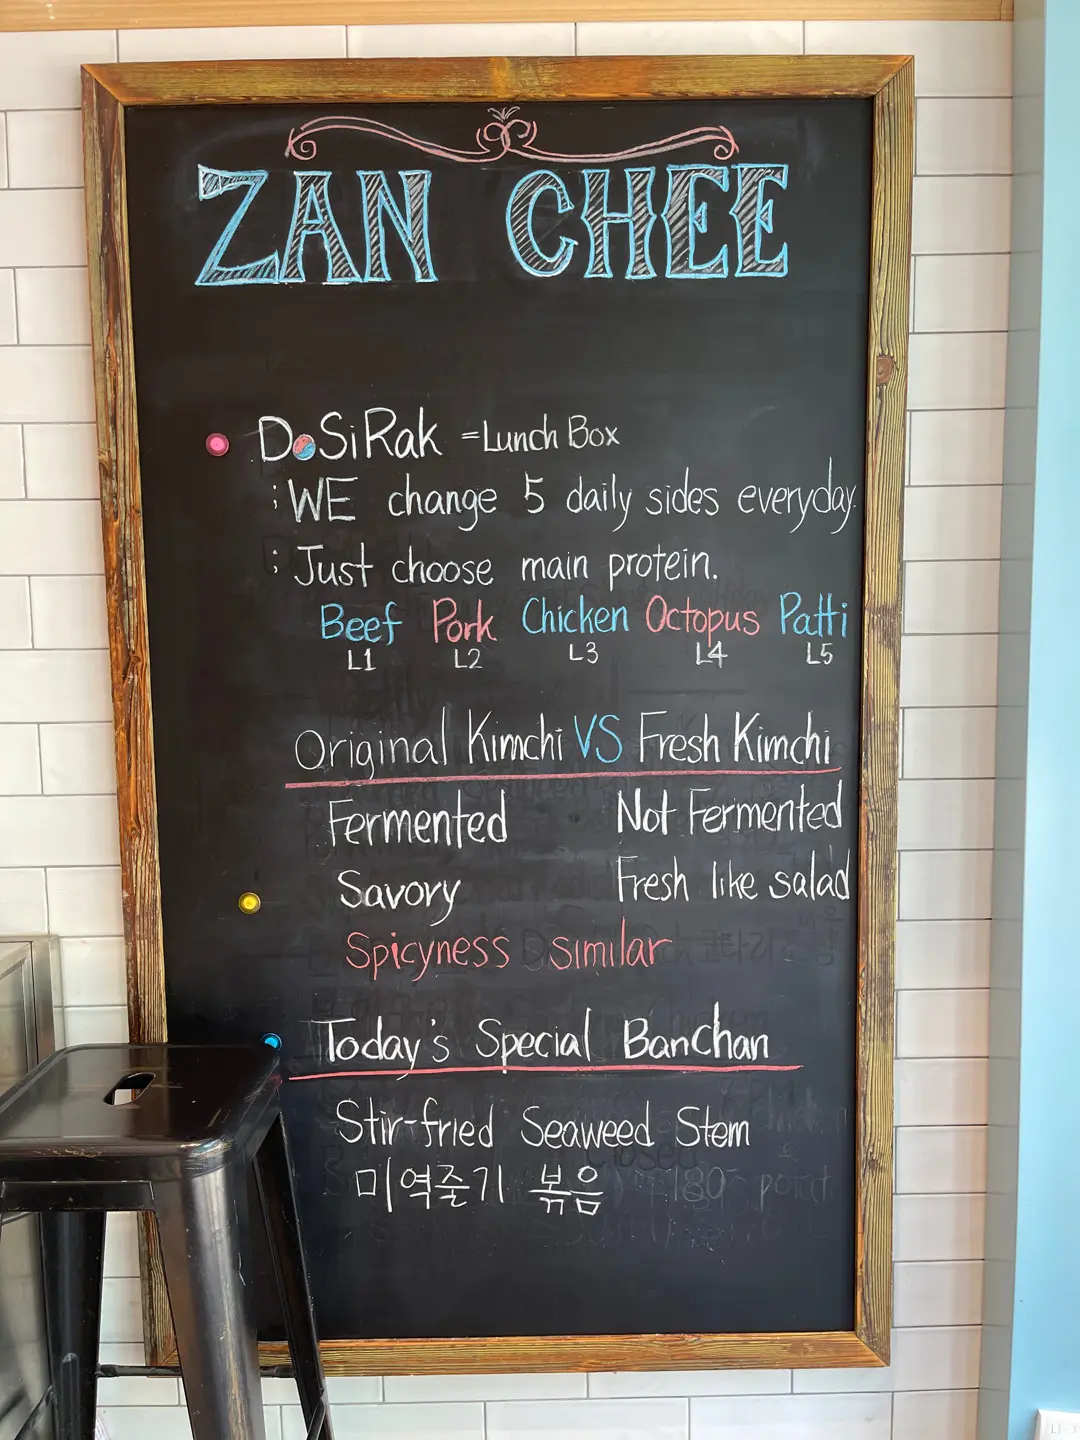 ZAN CHEE
DoSiRak =Lunch Box
; WE change 5 daily sides everyday.
; Just choose main protein.
Beef Pork Chicken Octopus Patti
L1 L2 L3 L4 L5
Original Kimchi VS Fresh Kimchi
Fermented Not Fermented
Savory Fresh like salad
Spicyness similar
Today's Special Banchan
Stir-fried Seaweed Stem
미역줄기 볶음